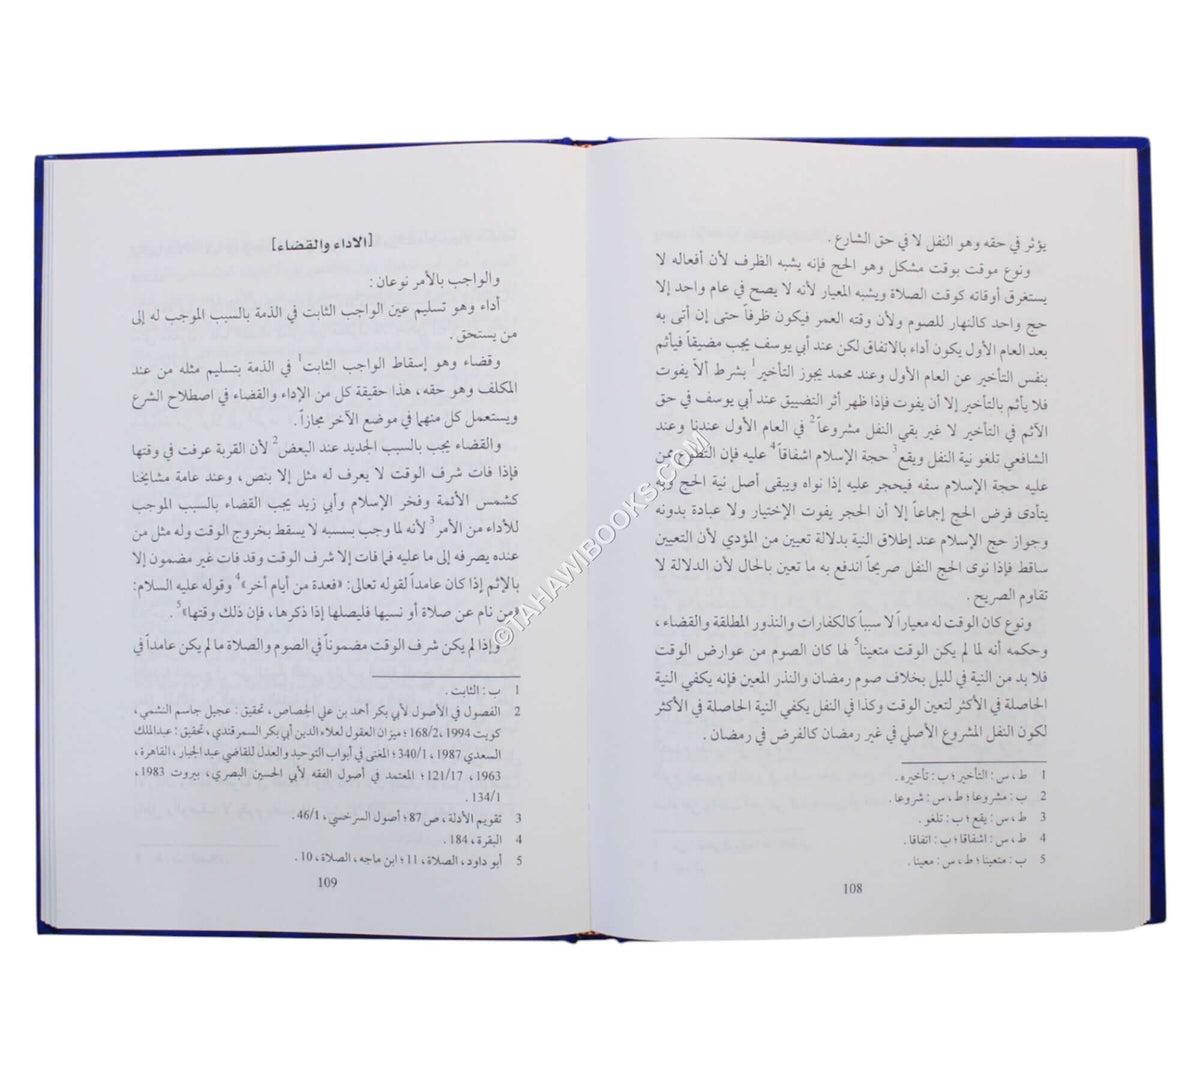 يؤثر في حقه وهو النفل لا في حق الشارع .
ونوع موقت بوقت مشكل وهو الحج فإنه يشبه الظرف لأن أفعاله لا
يستغرق أوقاته كوقت الصلاة ويشبه المعيار لأنه لا يصح في عام واحد إلا
حج واحد كالنهار للصوم ولأن وقته العمر فيكون ظرفاً حتى إن أتى به
بعد العام الأول يكون أداء بالاتفاق لكن عند أبي يوسف يجب مضيقاً فيأثم
بنفس التأخير عن العام الأول وعند محمد يجوز التأخير1 بشرط ألاّ يفوت
فلا يأثم بالتأخير إلا أن يفوت فإذا ظهر أثر التضييق عند أبي يوسف في حق
الآثم في التأخير لا غير بقي النفل مشروعاً2 في العام الأول عندنا وعند
الشافعي تلغو نية النفل ويقع3 حجة الإسلام اشفاقاً4 عليه فإن التطوع ممن
عليه حجة الإسلام سفه فيحجر عليه إذا نواه ويبقى أصل نية الحج وبه
يتأدى فرض الحج إجماعاً إلا أن الحجر يفوت الإختيار ولا عبادة بدونه
وجواز حج الإسلام عند إطلاق النية بدلالة تعيين من المؤدي لأن التعيين
ساقط فإذا نوى الحج النفل صريحاً اندفع به ما تعين بالحال لأن الدلالة لا
تقاوم الصريح .
ونوع كان الوقت له معياراً لا سبباً كالكفارات والنذور المطلقة والقضاء ،
وحكمه أنه لما لم يكن الوقت متعينا5 لها كان الصوم من عوارض الوقت
فلا بد من النية في لليل بخلاف صوم رمضان والنذر المعين فإنه يكفي النية
الحاصلة في الأكثر لتعين الوقت وكذا في النفل يكفي النية الحاصلة في الأكثر
لكون النفل المشروع الأصلي في غير رمضان كالفرض في رمضان .
1 ط ، س : التأخير ؛ ب : تأخيره .
2 ب : مشروعا ؛ ط ، س : شروعا .
3 ط ، س : يقع ؛ ب : تلغو .
4 ط ، س : اشفاقا ؛ ب : اتفاقا .
5 ب : متعينا ؛ ط ، س : معينا .
108
[الاداء والقضاء]
والواجب بالأمر نوعان :
أداء وهو تسليم عين الواجب الثابت في الذمة بالسبب الموجب له إلى
من يستحق .
وقضاء وهو إسقاط الواجب الثابت1 في الذمة بتسليم مثله من عند
المكلف وهو حقه ، هذا حقيقة كل من الإداء والقضاء في اصطلاح الشرع
ويستعمل كل منهما في موضع الآخر مجازاً .
والقضاء يجب بالسبب الجديد عند البعض2 لأن القربة عرفت في وقتها
فإذا فات شرف الوقت لا يعرف له مثل إلا بنص ، وعند عامة مشايخنا
كشمس الأئمة وفخر الإسلام وأبي زيد يجب القضاء بالسبب الموجب
للأداء من الأمر3 لأنه لما وجب بسببه لا يسقط بخروج الوقت وله مثل من
عنده يصرفه إلى ما عليه فما فات إلا شرف الوقت وقد فات غير مضمون إلا
بالإثم إذا كان عامداً لقوله تعالى: «فعدة من أيام أخر»4 وقوله عليه السلام:
«من نام عن صلاة أو نسيها فليصلها إذا ذكرها، فإن ذلك وقتها»5 .
وإذا لم يكن شرف الوقت مضموناً في الصوم والصلاة ما لم يكن عامداً في
1 ب : الثابت .
2 الفصول في الأصول لأبي بكر أحمد بن علي الجصاص ، تحقيق : عجيل جاسم النشمي ،
كويت 1994 ، 168/2 ؛ ميزان العقول لعلاء الدين أبي بكر السمرقندي ، تحقيق : عبدالملك
السعدي 1987 ، 340/1 ؛ المغنى في أبواب التوحيد والعدل للقاضي عبد الجبار ، القاهرة ،
1963 ، 121/17 ؛ المعتمد في أصول الفقه لأبي الحسين البصري ، بيروت 1983 ،
134/1 .
3 تقويم الأدلة ، ص 87 ؛ أصول السرخسي ، 46/1 .
4 البقرة ، 184 .
5 أبو داود ، الصلاة ، 11 ؛ ابن ماجه ، الصلاة ، 10 .
109
©TAHAWIBOOKS.COM